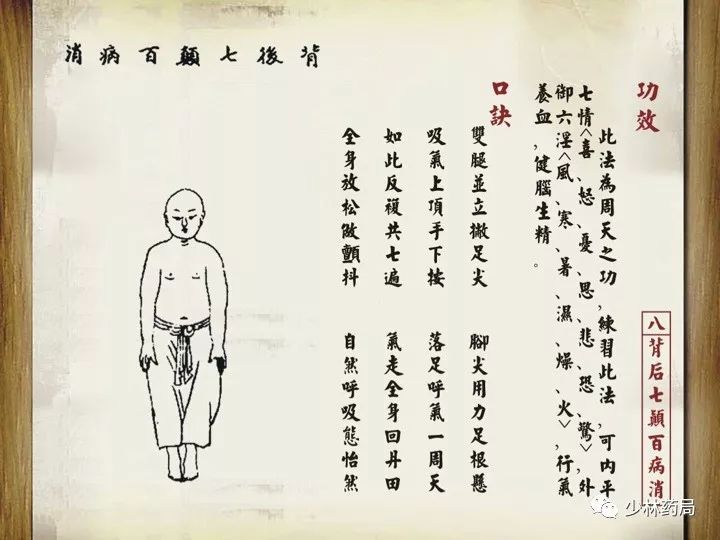 功效
此法為周天之功,練習此法,可内平
七情<喜、怒、憂、思、悲、恐、驚>,外
御六淫<風、寒、暑、濕、燥、火>,行氣
養血,健腦生精。
八背后七顛百病消
口訣
雙腿並立撇足尖 腳尖用力足根懸
吸氣上頂手下按 落足呼氣一周天
如此反複共七遍 氣走全身回丹田
全身放松做顫抖 自然呼吸態怡然
背後七顛百病消
少林药局